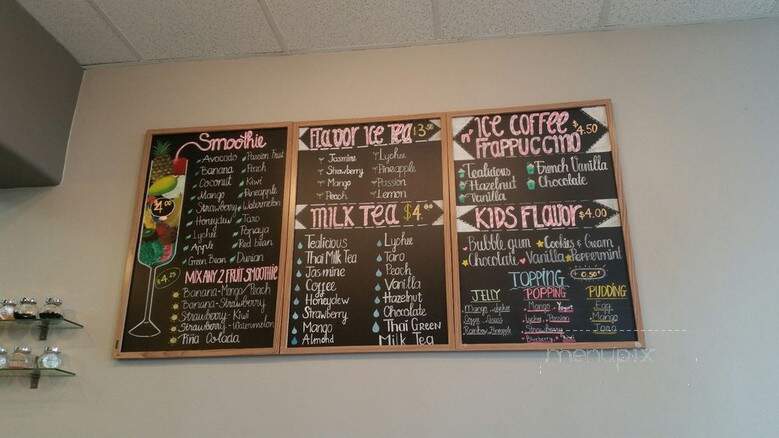 Smoothie
Avocado Passion Fruit
Banana Peach
Coconut Kiwi
Mango Pineapple
Strawberry Watermelon
Honeydew Taro
Lychee Papaya
Apple Red bean
Green Bean Durian
$4.25
MIX ANY 2 FRUIT SMOOTHIE
Banana-Mango/Peach
Banana-Strawberry
Strawberry-Kiwi
Strawberry-Watermelon
Piña Colada
Flavor Ice Tea
Jasmine Lychee
Strawberry Pineapple
Mango Passion
Peach Lemon
MILK TEA $4.
Tealicious Lychee
Thai Milk Tea Taro
Jasmine Peach
Coffee Vanilla
Honeydew Hazelnut
Strawberry Chocolate
Mango Thai Green
Almond Milk Tea
ICE COFFEE $4.50
n' Frappuccino
Tealicious French Vanilla
Hazelnut Chocolate
Vanilla
KIDS Flavor $4.00
Bubble gum Cookies & Cream
Chocolate Vanilla Peppermint
TOPPING $0.50
JELLY POPPING PUDDING
Mango, Lychee Mango, Egg
Coffee Lychee, Passion Mango
Rainbow, Pineapple Strawberry Taro
Blueberry, Kiwi
menupix